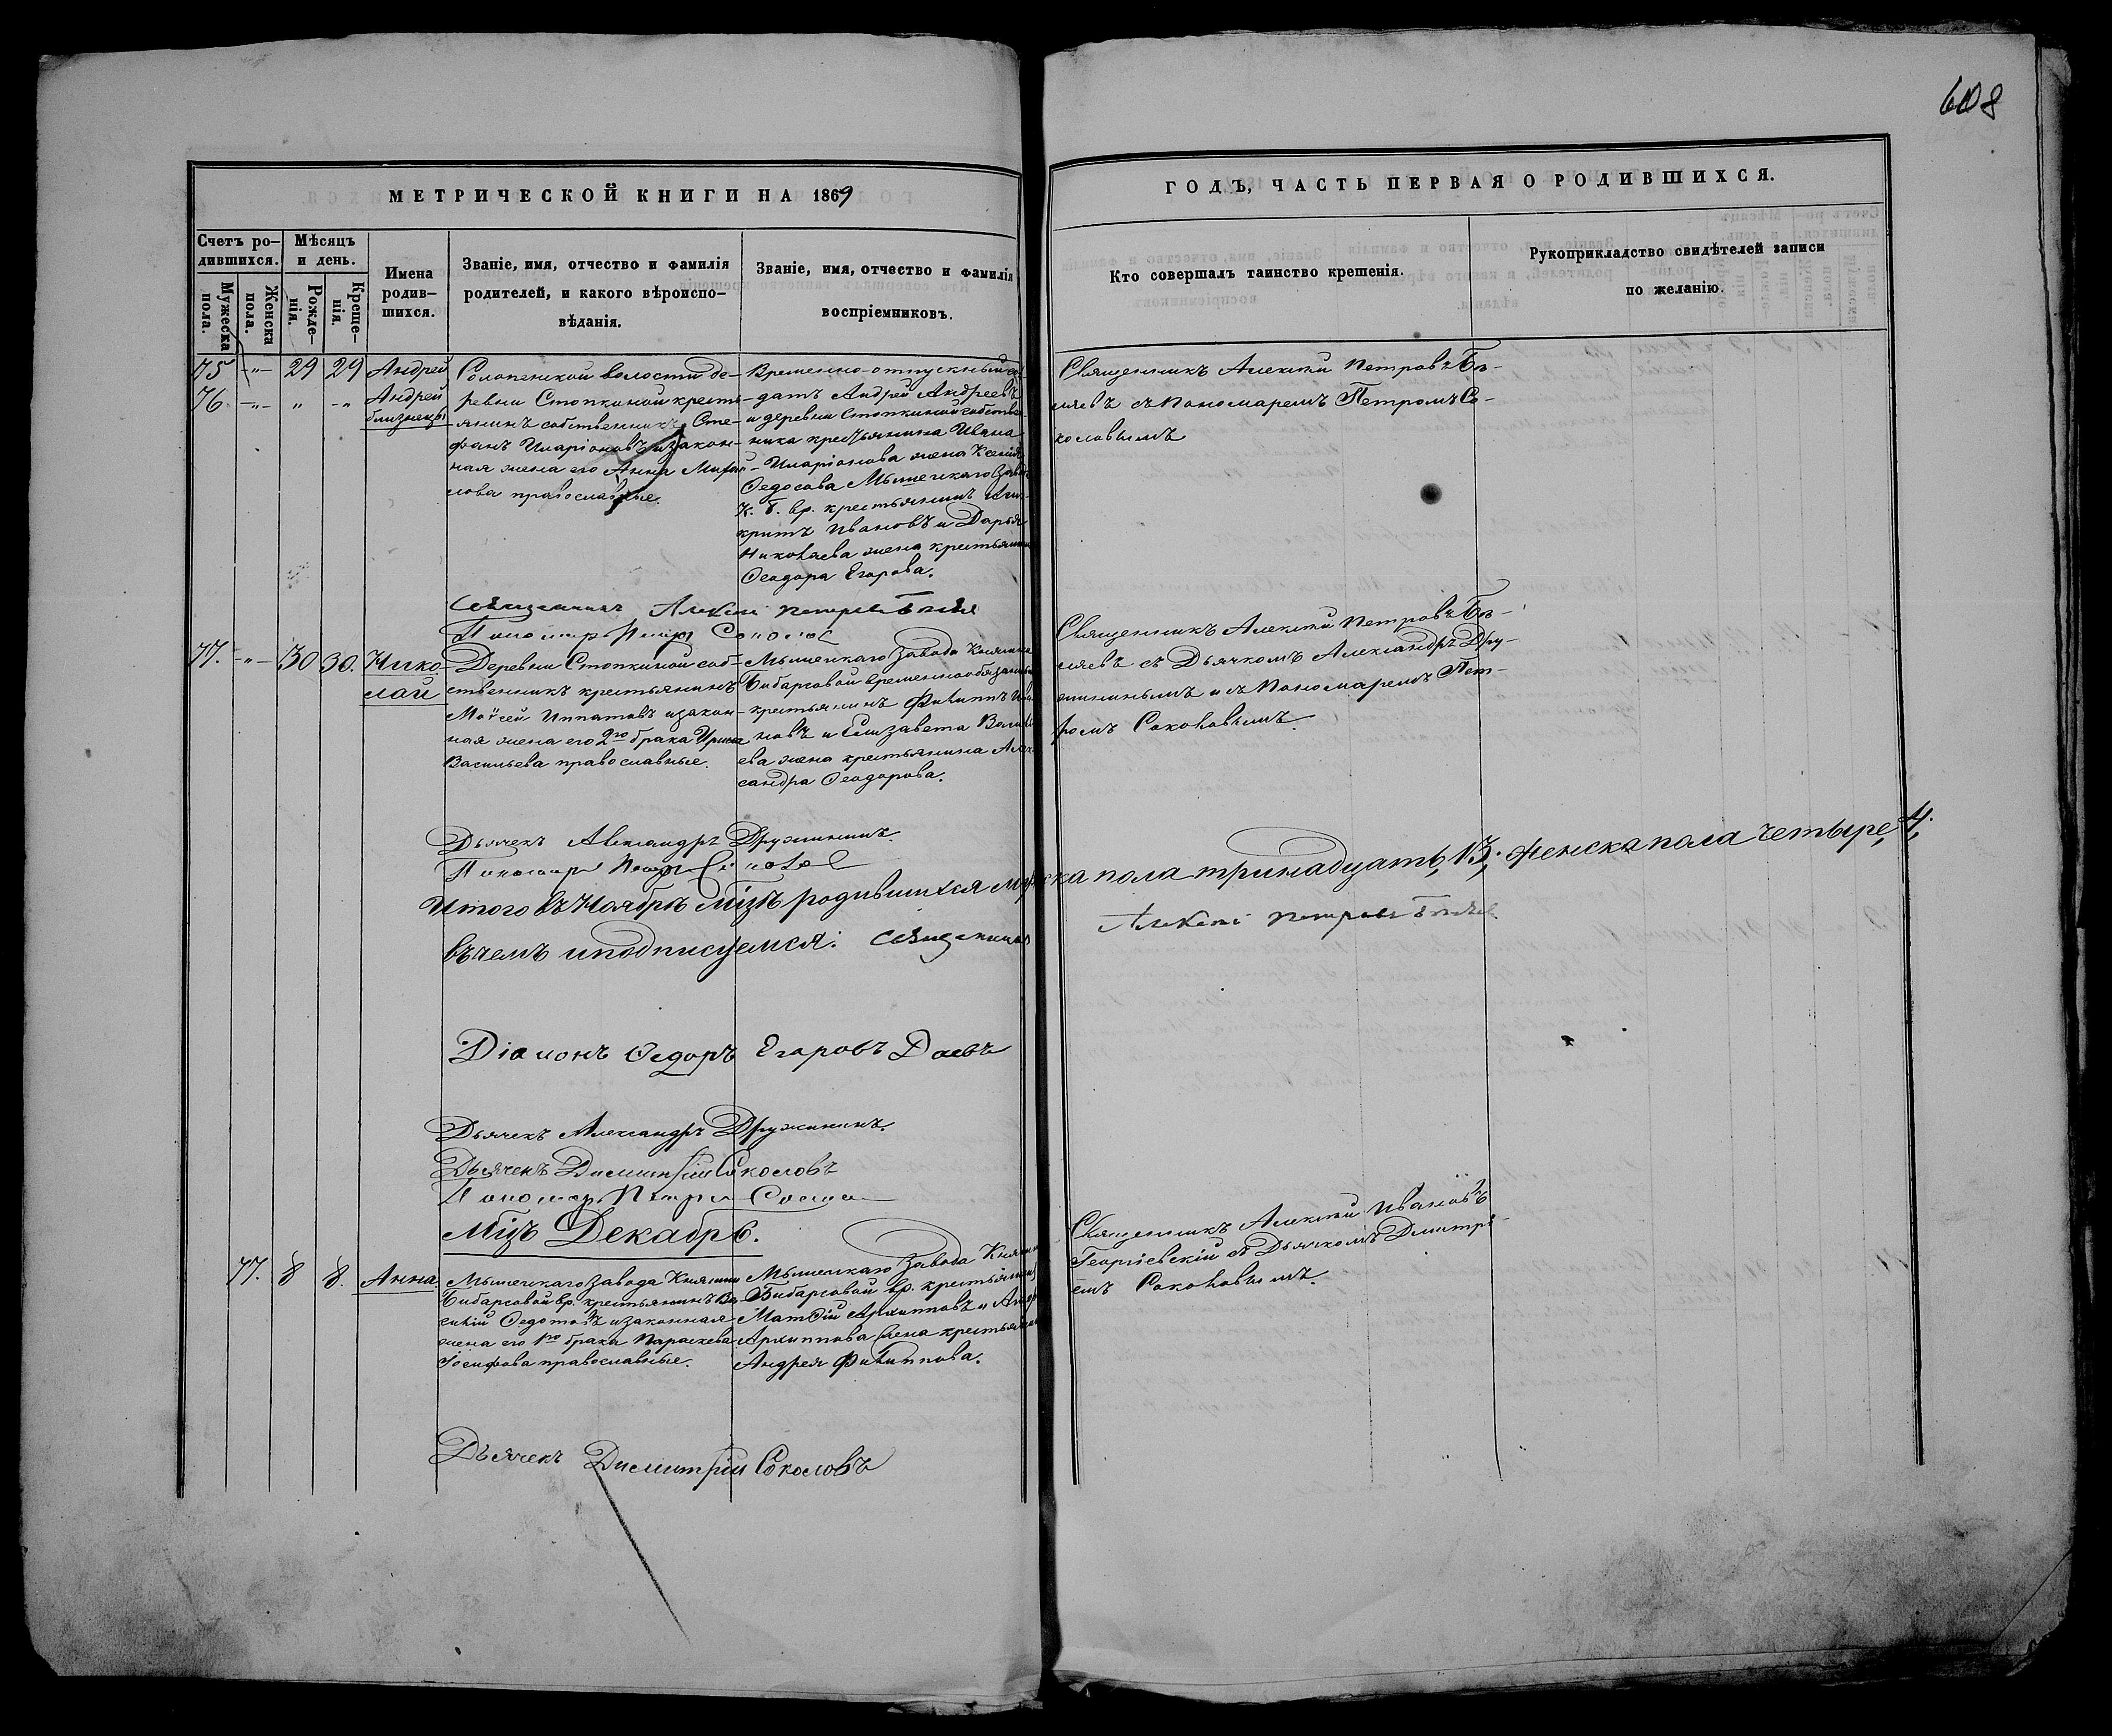 608
МЕТРИЧЕСКОЙ КНИГИ НА 1869
ГОДЪ, ЧАСТЬ ПЕРВАЯ О РОДИВШИХСЯ.
Счетъ ро-
дившихся.
Мужеска
пола.
Женска
пола.
Мѣсяцъ
и день.
Рожде-
нія.
Креще-
нія.
Имена
родив-
шихся.
Званіе, имя, отчество и фамилія
родителей, и какого вѣроиспо-
вѣданія.
Званіе, имя, отчество и фамилія
воспріемниковъ.
Кто совершалъ таинство крещенія.
Рукоприкладство свидѣтелей записи
по желанію.
75 -"- 29 29 Андрей
76. -"- " -" Андрей
близнецы
Солопенской волости де-
ревни Стопкиной кресть-
янинъ собственникъ Сте-
фанъ Иларіоновъ и закон-
ная жена его Анна Михай-
лова православные.
Временно-отпускный сол-
датъ Андрей Андреевъ
и деревни Стопкиной собствен-
ника крестьянина Ивана
Иларіонова жена Ксенія
Ѳедосова Мышегскаго завода
К. Б. вр. крестьянинъ
Ивановъ и Дарья
Николаева жена крестьянина
Ѳеодора Егорова.
Священникъ Алексѣй Петровъ Бѣ-
ляевъ съ Пономаремъ Петромъ Со-
коловымъ
Священникъ Алексѣй Петровъ Бѣляевъ
Пономарь Петръ Соколовъ
77. -"- 30 30. Нико
лай
Деревни Стопкиной соб-
ственникъ крестьянинъ
Моѵсей Ипатовъ и закон-
ная жена его 2го брака Ирина
Васильева православные.
Мышегскаго завода Княгини
Бибарсовой временнообязанный
крестьянинъ Филиппъ Ива
новъ и Елизавета Василь
ева жена крестьянина Алек
сандра Ѳеодорова.
Священникъ Алексѣй Петровъ Бѣ-
ляевъ съ Дьячкомъ Александръ Дру-
жининымъ и съ Пономаремъ Пет-
ромъ Соколовымъ.
Дьячекъ Александръ Дружининъ.
Пономарь Петръ Соколовъ
Итого въ Ноябрѣ мѣцѣ родившихся мужеска пола тринадцать, 13; женска пола четыре, 4;
въ чемъ и подписуемся: Священникъ Алексѣй Петровъ Бѣляевъ.
Діаконъ Ѳедоръ Егоровъ Доевъ
Дьячекъ Александръ Дружининъ.
Дьячекъ Димитрій Соколовъ
Пономарь Петръ Соколовъ
Мѣцъ Декабрь.
77. 8 8. Анна
Мышегскаго завода Княгини
Бибарсовой вр. крестьянинъ Ва-
силій Ѳедотовъ и законная
жена его 1го брака Параскева
Іосифова православные.
Мышегскаго завода Княгини
Бибарсовой вр. крестьянинъ
Матѳій Архипповъ и
Архиппова жена крестьянина
Андрея Филиппова.
Священникъ Алексѣй Ивановъ
Георгіевскій съ Дьячкомъ Дмитрі-
емъ Соколовымъ.
Дьячекъ Димитрій Соколовъ